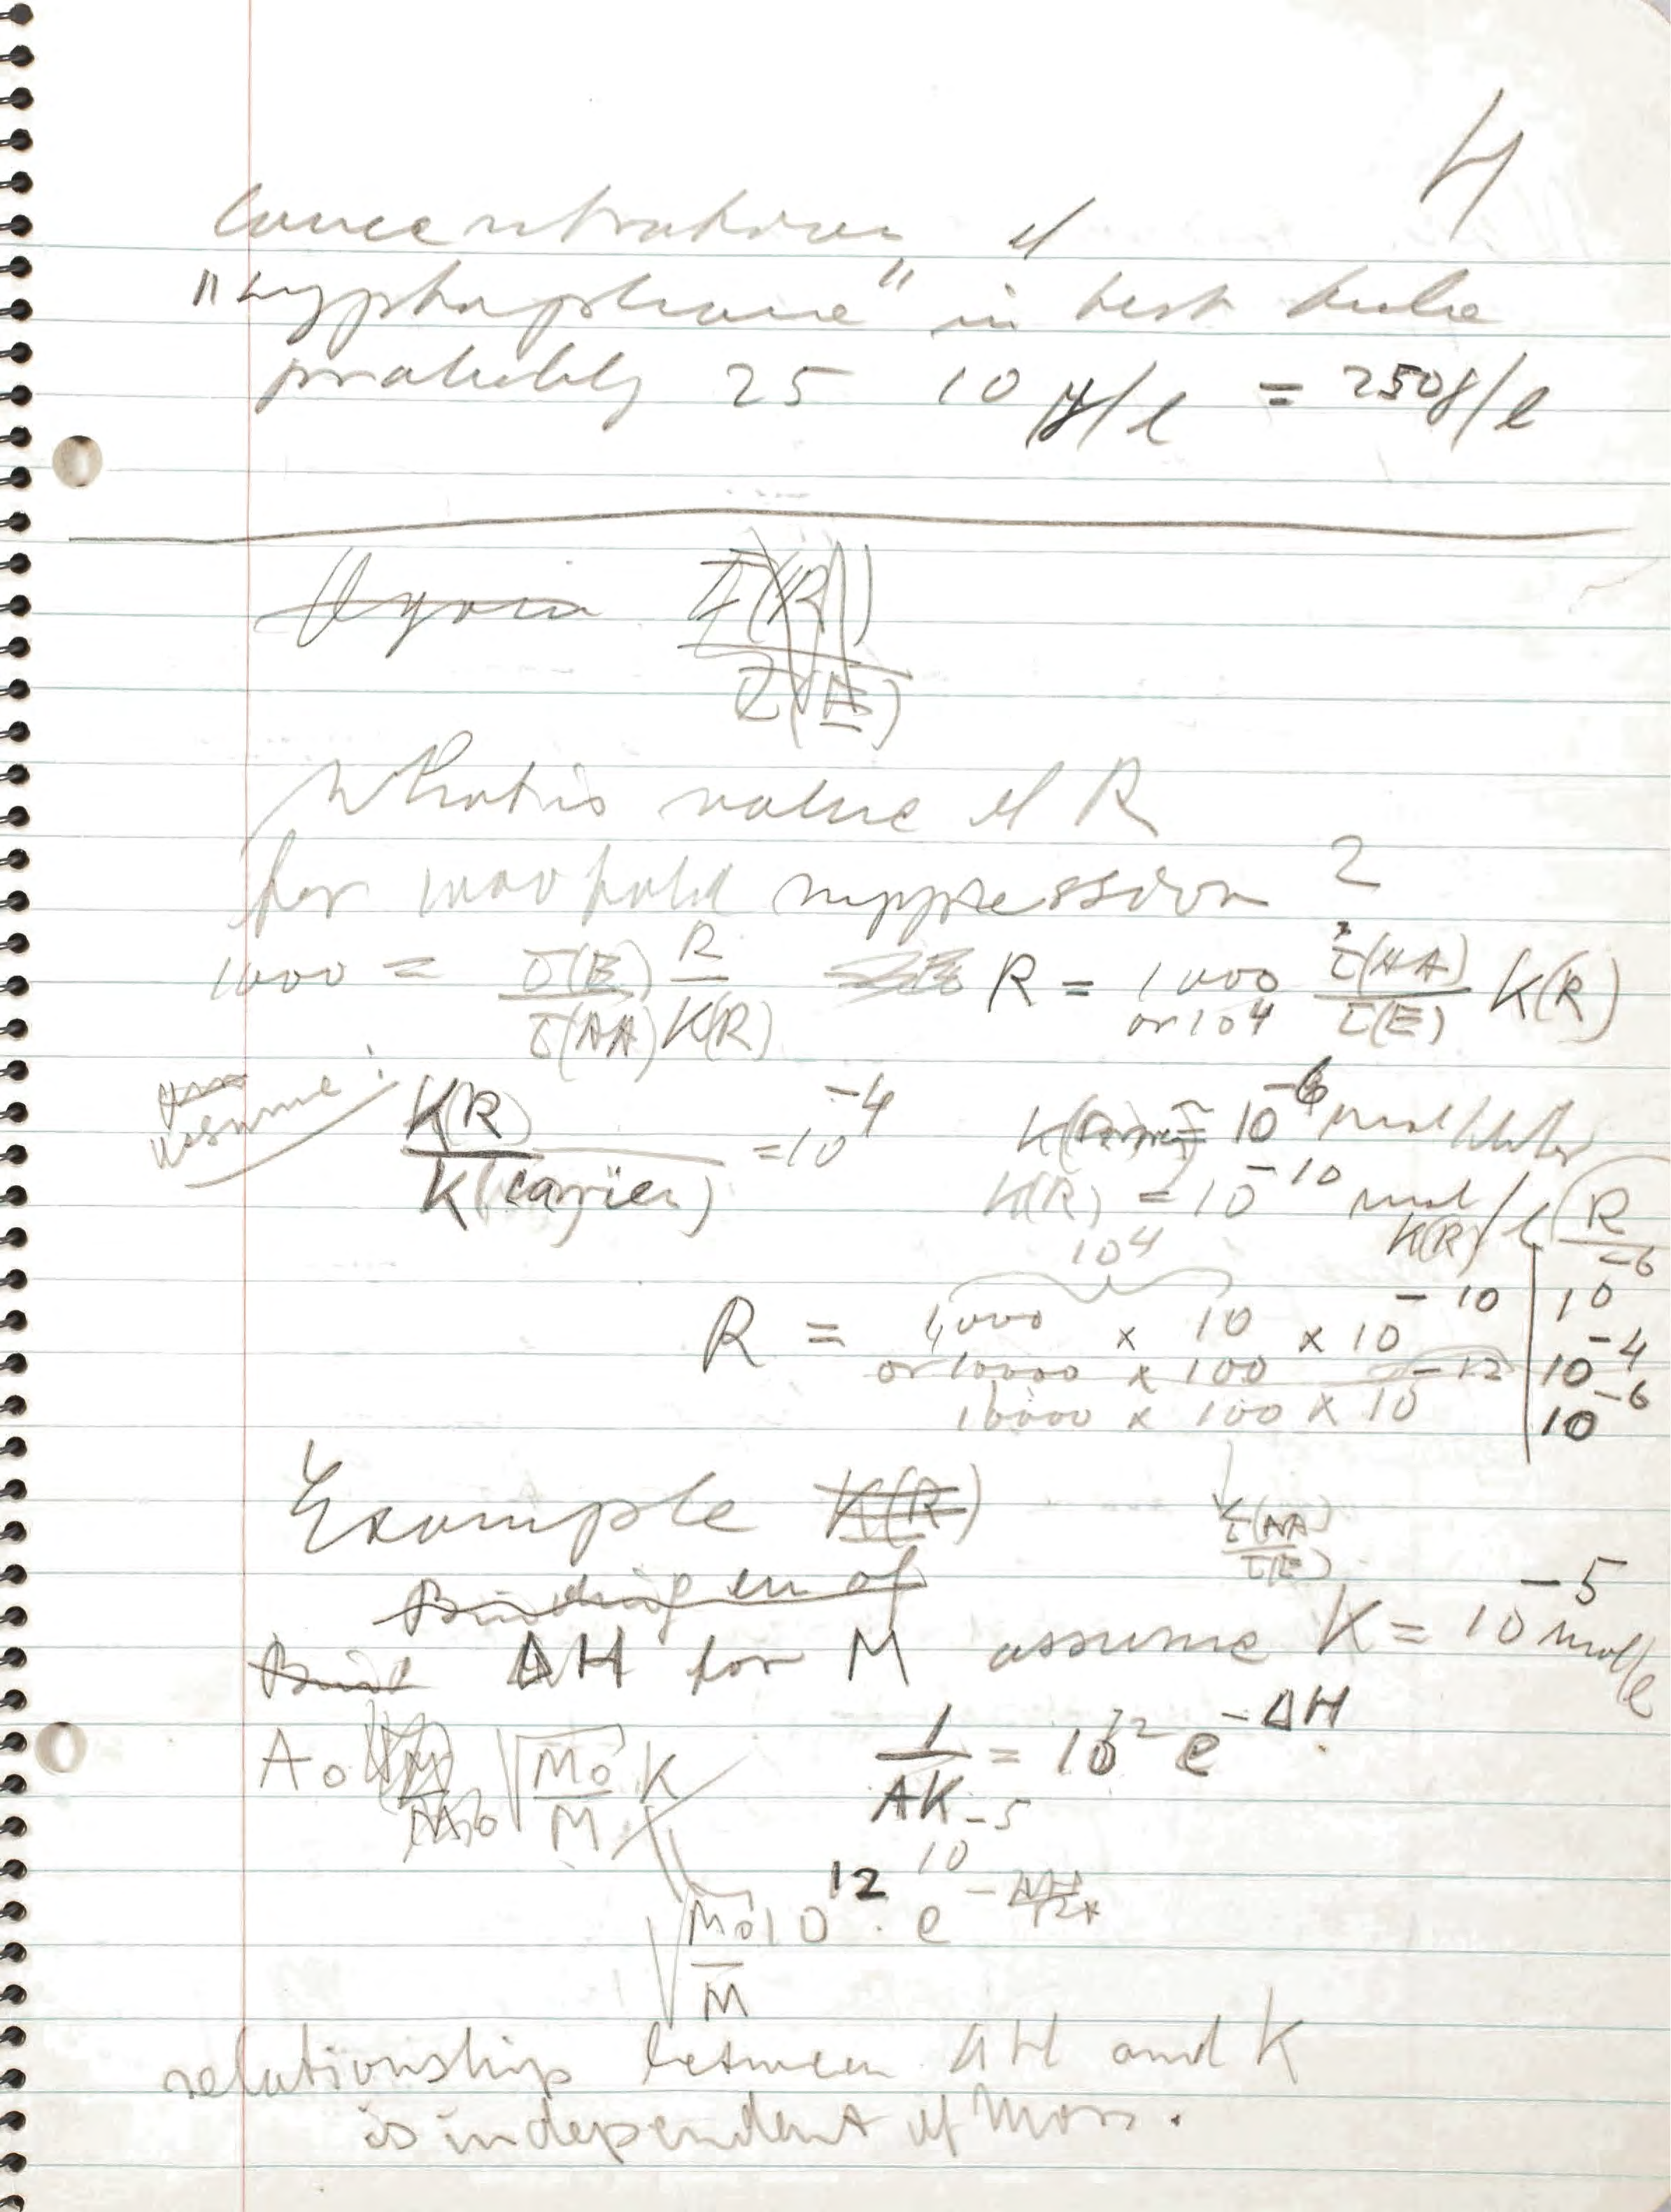 4
Concentration of
"tryptophane" in test tube
probably 25 10 γ/l = 250γ/l
What is value of R
for 1000 fold suppression ?
1000 = τ(E)/τ(AA) R/K(R) R = 1000 or 10^4 τ(AA)/τ(E) K(R)
assume: K(R)/K(carrier) = 10^-4 K(carrier) = 10^-6 mol/liter
K(R) = 10^-10 mol/l
10^4 K(R) R
R = 1,000 × 10 × 10^-10 | 10^-6
or 10000 × 100 | 10^-4
10000 × 100 × 10^-12 | 10^-6
Example K(R) τ(AA)/τ(E)
Binding en of
ΔH for M assume K = 10^-5 mol/l
A₀ √M₀/M K 1/AK = 10^12 e^-ΔH
10^-5
√M₀/M 10^12 · e
relationship between ΔH and K
is independent of Mass.